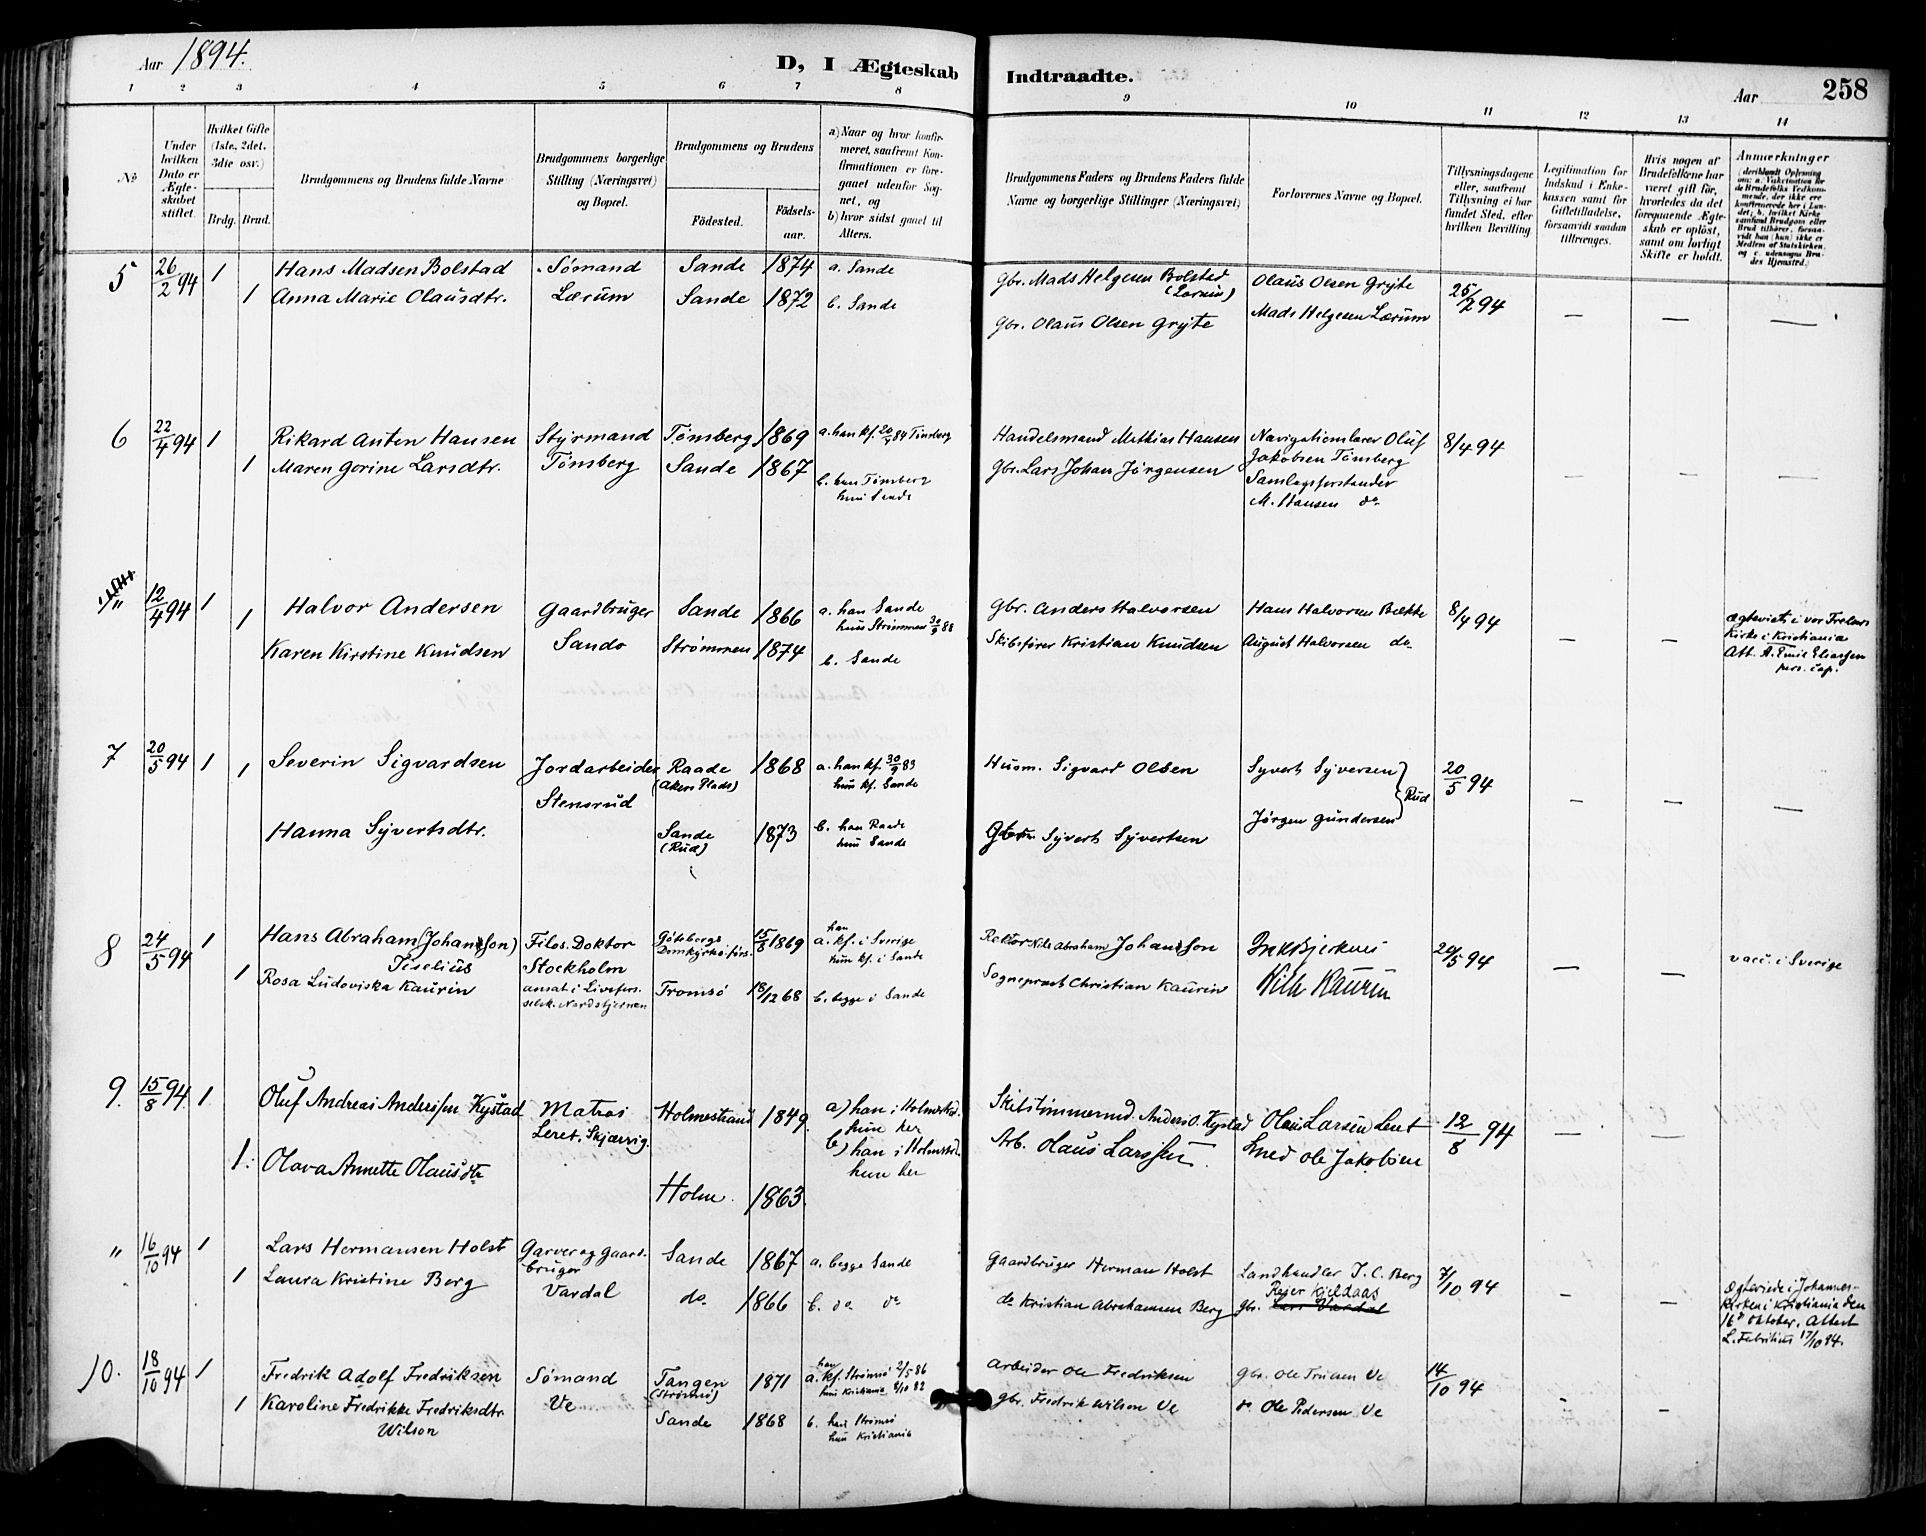 Aar 1894.
D, I Ægteskab
Indtraadte.
Aar
258
1 2 3 4 5 6 7 8 9 10 11 12 13 14
No
Under hvilken Dato er Ægteskabet stiftet.
Hvilket Gifte (1ste, 2det, 3die osv.)
Brdg. Brud.
Brudgommens og Brudens fulde Navne
Brudgommens borgerlige Stilling (Næringsvei) og Bopæl.
Brudgommens og Brudens
Födested.
Födselsaar.
a) Naar og hvor konfirmeret, saafremt Konfirmationen er foregaaet udenfor Sognet, og
b) hvor sidst gaaet til Alters.
Brudgommens Faders og Brudens Faders fulde Navne og borgerlige Stillinger (Næringsvei)
Forlovernes Navne og Bopæl.
Tillysningsdagene eller, saafremt Tillysning ei har fundet Sted, efter hvilken Bevilling
Legitimation for Indskud i Enkekassen samt for Giftetilladelse, forsaavidt saadan tiltrænges.
Hvis nogen af Brudefolkene har været gift før, hvorledes da det foregaaende Ægteskab er oplöst, samt om lovligt Skifte er holdt.
Anmærkninger
5 26/2 94 1 Hans Madsen Bolstad Sømand Sande 1874 a. Sande Gbr. Mads Helgesen Bolstad Olaus Olsen Gryte 25/2 94
1 Anna Marie Olausdtr. Lærum Sande 1872 b. Sande Gbr. Olaus Olsen Gryte Mads Helgesen Lærum
6 22/4 94 1 Rikard Anton Hansen Styrmand Tønsberg 1869 a. han kf. 84 Tønsberg Handelsmand Mathias Hansen Navigationslærer Oluf 8/4 94
1 Maren Gorine Larsdtr. Tønsberg Sande 1867 b. han Tønsberg Gbr. Lars Johan Jørgensen Jakobsen Tønsberg
hun Sande Samlagsforstander
M. Hansen do
12/4 94 1 Halvor Andersen Gaardbruger Sande 1866 a. han Sande Gbr. Anders Halvorsen Hans Halvorsen Bække 8/4 94
1 Karen Kirstine Knudsen Sande Strømmen 1874 hun Strømmen 30/9 88 Skibsfører Kristian Knudsen August Halvorsen do
b. Sande
ægteviet i vor Frelsers
Kirke i Kristiania
Att. A. Emil Eliassen
pers. cap.
7 20/5 94 1 Severin Sigvardsen Jordarbeider Raade 1868 a. han kf. 30/9 83 Husm. Sigvard Olsen Syvert Syversen 20/5 94
1 Hanna Syvertsdtr. Stensrud (Akers Plads) hun kf. Sande Rud
Sande 1873 b. han Raade Syvert Syvertsen Jørgen Gundersen
(Rud) hun Sande
8 24/5 94 1 Hans Abraham (Johansson) Filos. Doktor Göteborgs 15/8 1869 han Rektor Nils Abraham Johansson 20/5 94 vacc. i Sverige
Tiselius Stockholm Domkyrkoförs. a. kf. i Sverige
1 Rosa Ludoviska Kaurin ansat i Livsfors. hun kf. i Sande Sogneprest Christian Kaurin
selsk. Nordstjernen Tromsø 18/12 68 b. begge i Sande
9. 15/8 94. 1 Oluf Andreas Anderssen Kystad Matros Holmestrand 1849. a) han i Holmestrd. Skibstømmermd. Anders O. Kystad Olaus Larsen Leret 12/8 94
Leret, Skjærvig. hun her
1. Olava Annette Olausdtr Holm. 1863. b) han i Holmestrd. Arb. Olaus Larssen Smed Ole Jakobsen
hun her
" 16/10 94 1 Lars Hermansen Holst Garver og Gaard- Sande 1867 a. begge Sande Gaardbruger Herman Holst Landhandler J. C. Berg 7/10 94
bruger
1 Laura Kristine Berg Vardal do. 1866 b. do do do Kristian Abrahamsen Berg gbr. Peder Kjeldaas
Ægteviede i Johannes-
kirken i Kristiania den
16de Oktober. Attest
L. Fabritius 17/10 94.
10. 18/10 94 1 Fredrik Adolf Fredriksen Sømand Tangen 1871 han Arbeider Ole Fredriksen gbr. Ole Ve 14/10 94
(Strømsø) a. kf. Strømsø 2/5 86
1 Karoline Fredrikke Fredriksdtr. Ve hun Kristiania 8/10 82
Wilson Sande 1868 b. han Strømsø gbr. Fredrik Wilson Ve do Ole Pedersen Ve
hun Kristiania